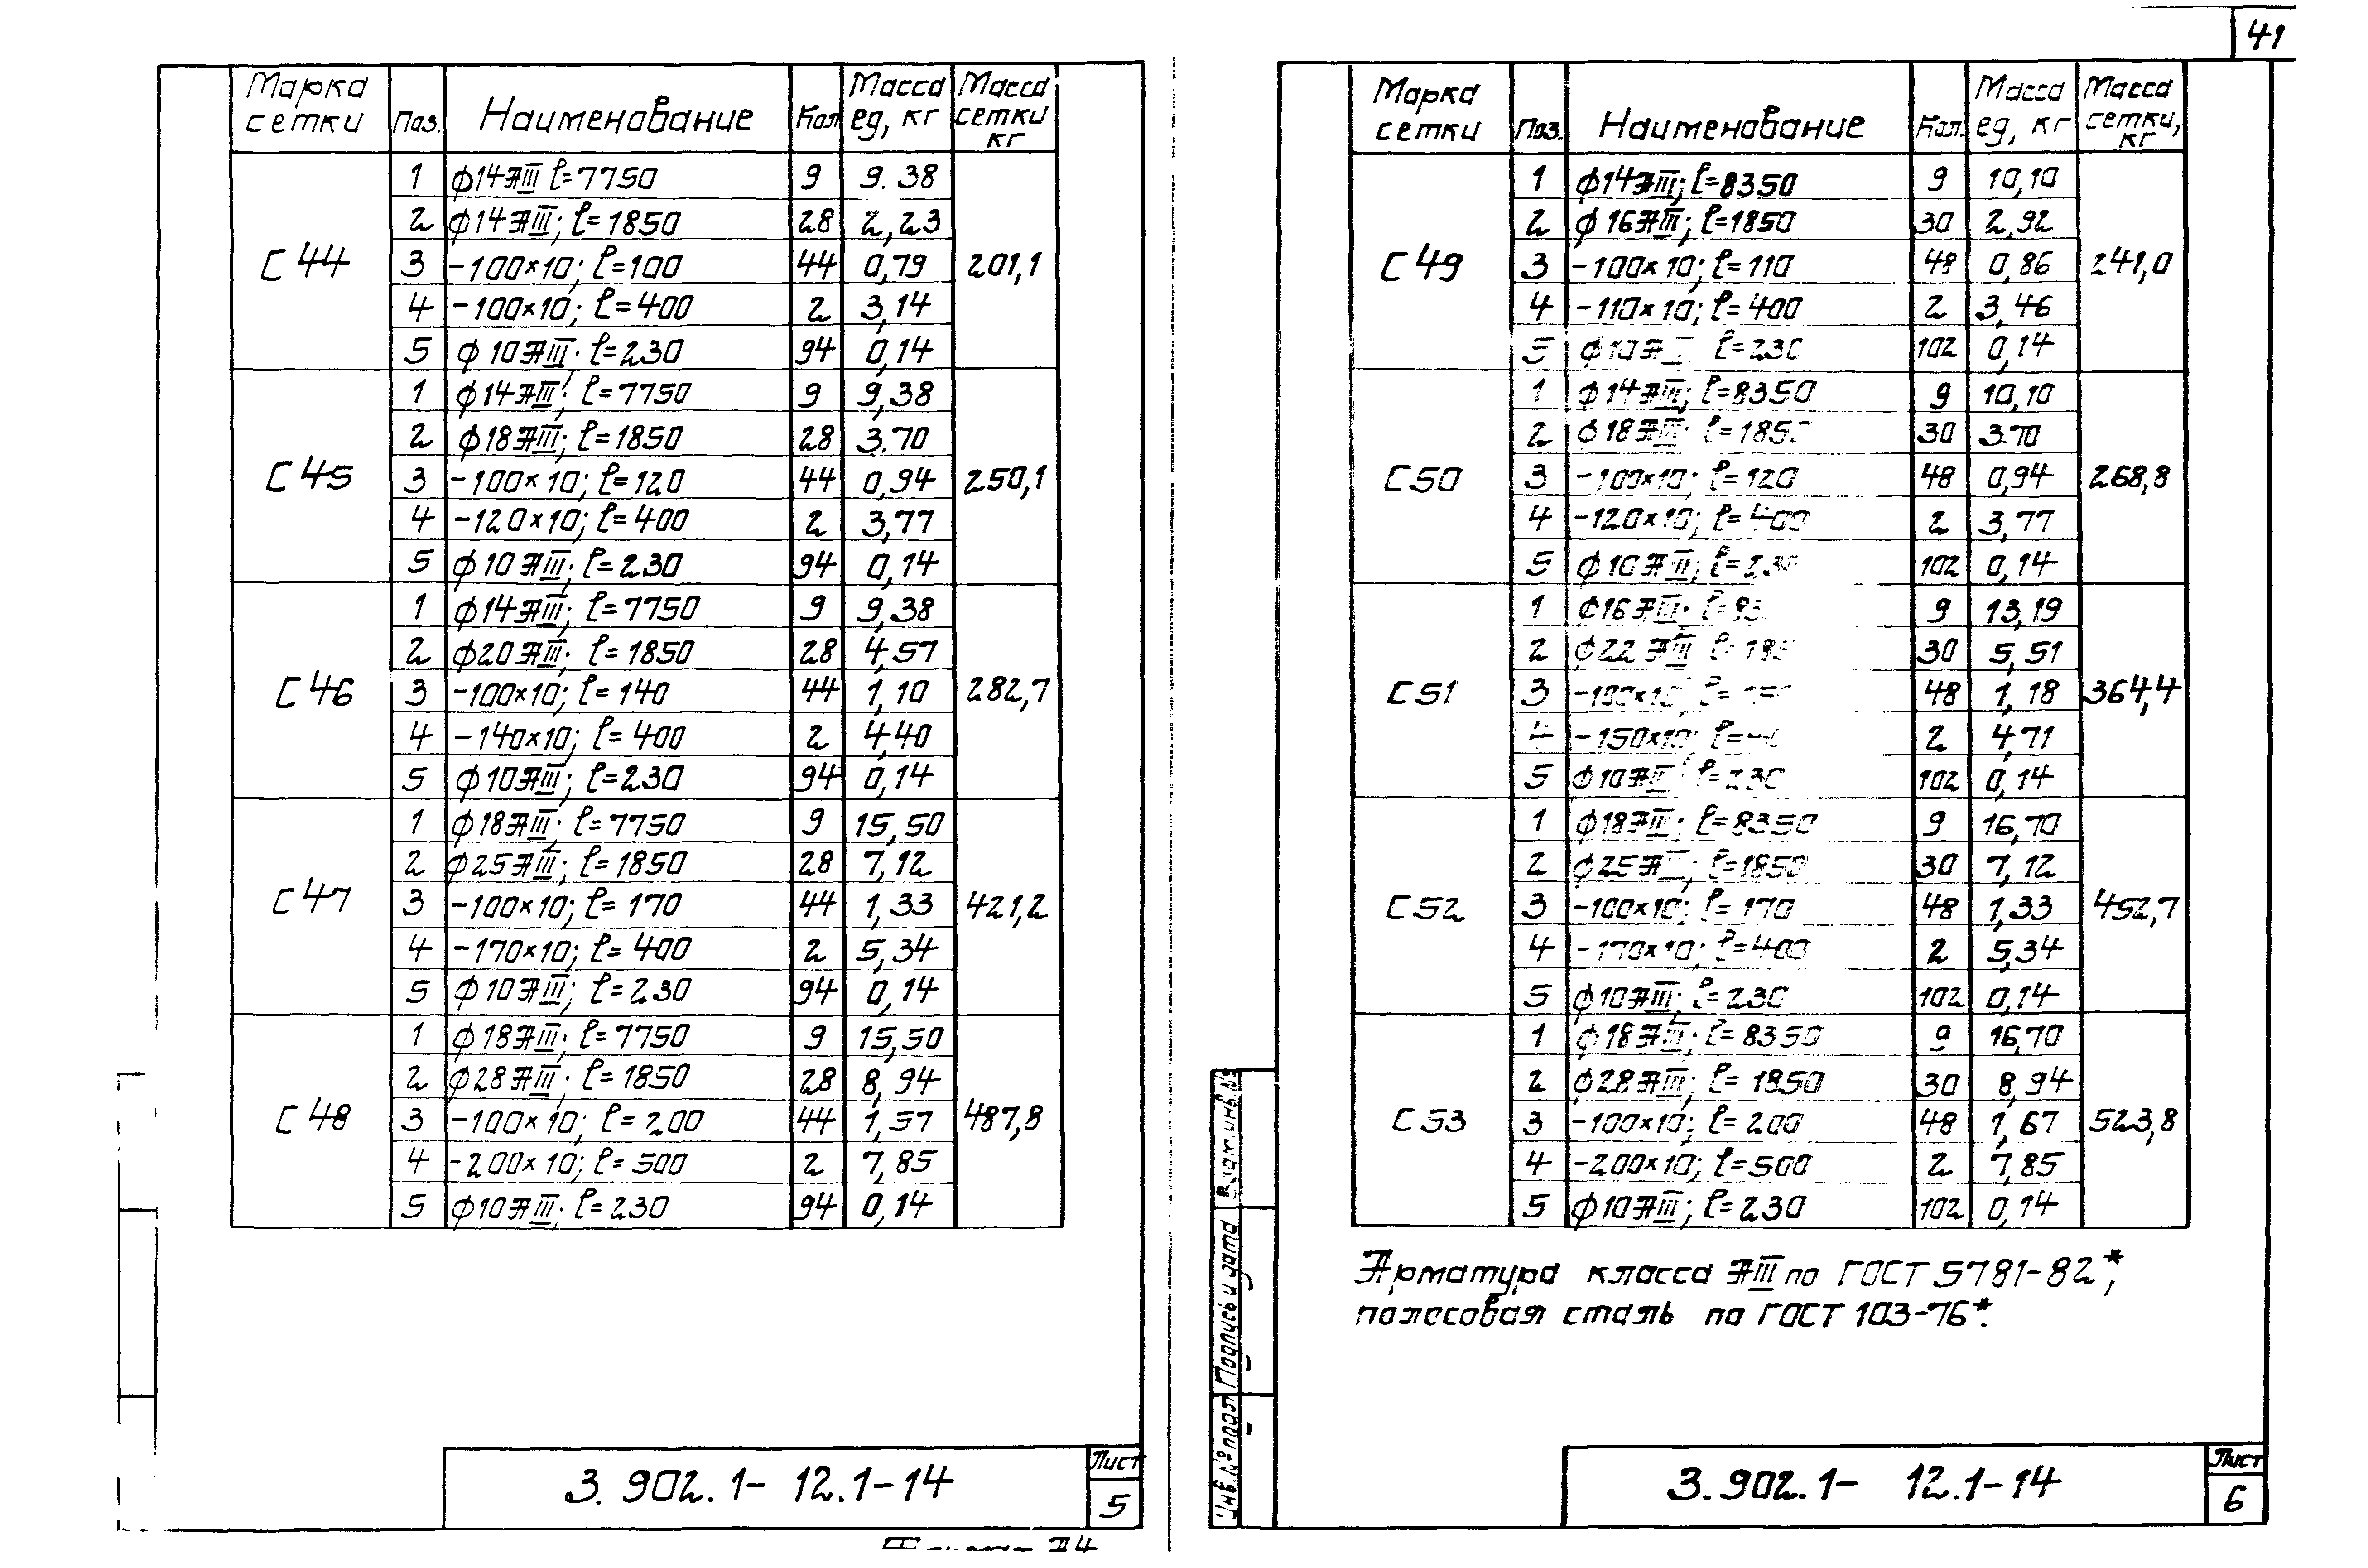 41
Марка сетки Поз. Наименование Кол Масса ед, кг Масса сетки кг
С 44 201,1
1 ф14АIII l=7750 9 9.38
2 ф14АIII; l=1850 28 2,23
3 -100×10; l=100 44 0,79
4 -100×10; l=400 2 3,14
5 ф10АIII; l=230 94 0,14
С 45 250,1
1 ф14АIII; l=7750 9 9,38
2 ф18АIII; l=1850 28 3.70
3 -100×10; l=120 44 0,94
4 -120×10; l=400 2 3,77
5 ф10АIII; l=230 94 0,14
С 46 282,7
1 ф14АIII; l=7750 9 9,38
2 ф20АIII; l=1850 28 4,57
3 -100×10; l=140 44 1,10
4 -140×10; l=400 2 4,40
5 ф10АIII; l=230 94 0,14
С 47 421,2
1 ф18АIII; l=7750 9 15,50
2 ф25АIII; l=1850 28 7,12
3 -100×10; l=170 44 1,33
4 -170×10; l=400 2 5,34
5 ф10АIII; l=230 94 0,14
С 48 487,8
1 ф18АIII; l=7750 9 15,50
2 ф28АIII; l=1850 28 8,94
3 -100×10; l=200 44 1,57
4 -200×10; l=500 2 7,85
5 ф10АIII; l=230 94 0,14
3.902.1-12.1-14
Лист
5
Марка сетки Поз. Наименование Кол. Масса ед, кг Масса сетки, кг
С 49 241,0
1 ф14АIII; l=8350 9 10,10
2 ф16АIII; l=1850 30 2,92
3 -100×10; l=110 48 0,86
4 -110×10; l=400 2 3,46
5 ф10А l=230 102 0,14
С 50 268,8
1 ф14АIII; l=8350 9 10,10
2 ф18АIII; l=185 30 3.70
3 -100×10; l=120 48 0,94
4 -120×10; l=400 2 3,77
5 ф10АII; l=230 102 0,14
С 51 364,4
1 ф16АIII; l=83 9 13,19
2 ф22АIII l=185 30 5,51
3 48 1,18
4 -150×10; l= 2 4,71
5 ф10АII l=230 102 0,14
С 52 452,7
1 ф18АIII; l=8350 9 16,70
2 ф25А l=1850 30 7,12
3 -100×10; l=170 48 1,33
4 -170×10; l=400 2 5,34
5 ф10АIII; l=230 102 0,14
С 53 523,8
1 ф18АIII; l=8350 9 16,70
2 ф28АIII; l=1850 30 8,94
3 -100×10; l=200 48 1,67
4 -200×10; l=500 2 7,85
5 ф10АIII; l=230 102 0,14
Арматура класса АIII по ГОСТ 5781-82*;
полосовая сталь по ГОСТ 103-76*.
Взам.инв.№
Подпись и дата
Инв.№подл
3.902.1- 12.1-14
Лист
6